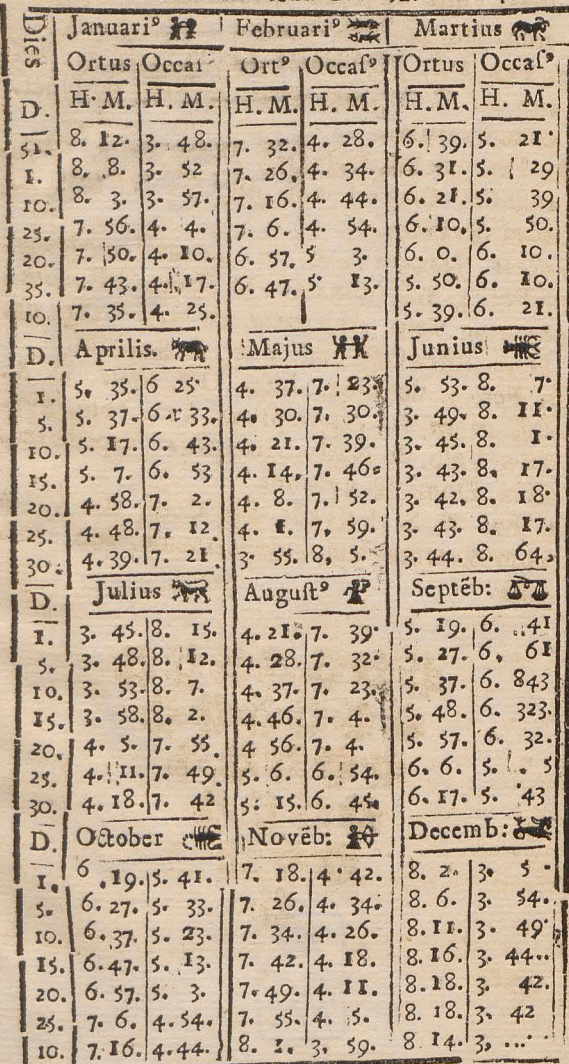 Dies Januari⁹ Februari⁹ Martius
Ortus Occaſ⁹ Ort⁹ Occaſ⁹ Ortus Occaſ⁹
D. H. M. H. M. H. M. H. M. H. M. H. M.
51. 8. 12. 3. 48. 7. 32. 4. 28. 6. 39. 5. 21.
1. 8. 8. 3. 52 7. 26. 4. 34. 6. 31. 5. 29
10. 8. 3. 3. 57. 7. 16. 4. 44. 6. 21. 5. 39
25. 7. 56. 4. 4. 7. 6. 4. 54. 6. 10. 5. 50.
20. 7. 50. 4. 10. 6. 57. 5 3. 6. 0. 6. 10.
35. 7. 43. 4. 17. 6. 47. 5. 13. 5. 50. 6. 10.
10. 7. 35. 4. 25. 5. 39. 6. 21.
D. Aprilis. Majus Junius
1. 5. 35. 6 25. 4. 37. 7. 23. 5. 53. 8. 7.
5. 5. 37. 6. 33. 4. 30. 7. 30. 3. 49. 8. 11.
10. 5. 17. 6. 43. 4. 21. 7. 39. 3. 45. 8. 1.
15. 5. 7. 6. 53 4. 14. 7. 46. 3. 43. 8. 17.
20. 4. 58. 7. 2. 4. 8. 7. 52. 3. 42. 8. 18.
25. 4. 48. 7. 12 4. 1. 7. 59. 3. 43. 8. 17.
30. 4. 39. 7. 21 3. 55. 8. 5. 3. 44. 8. 64.
D. Julius Auguſt⁹ Septēb:
1. 3. 45. 8. 15. 4. 21. 7. 39. 5. 19. 6. 41
5. 3. 48. 8. 12. 4. 28. 7. 32. 5. 27. 6. 61
10. 3. 53. 8. 7. 4. 37. 7. 23. 5. 37. 6. 843
15. 3. 58. 8. 2. 4. 46. 7. 4. 5. 48. 6. 323.
20. 4. 5. 7. 55. 4 56. 7. 4. 5. 57. 6. 32.
25. 4. 11. 7. 49. 5. 6. 6. 54. 6. 6. 5. 5
30. 4. 18. 7. 42 5. 15. 6. 45. 6. 17. 5. 43
D. October Novēb: Decemb:
1. 6 .19. 5. 41. 7. 18. 4. 42. 8. 2. 3. 5
5. 6. 27. 5. 33. 7. 26. 4. 34. 8. 6. 3. 54.
10. 6. 37. 5. 23. 7. 34. 4. 26. 8. 11. 3. 49.
15. 6. 47. 5. 13. 7. 42. 4. 18. 8. 16. 3. 44.
20. 6. 57. 5. 3. 7. 49. 4. 11. 8. 18. 3. 42.
25. 7. 6. 4. 54. 7. 55. 4. 5. 8. 18. 3. 42
10. 7. 16. 4. 44. 8. 1. 3. 59. 8 14. 3. ...